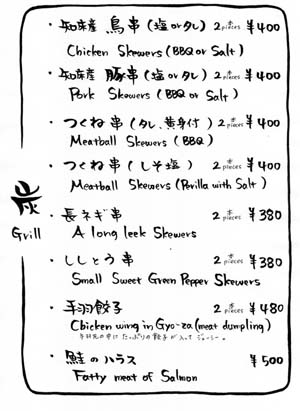 ・知床産 鳥串 (塩 or タレ) 2本 pieces ¥400
Chicken Skewers (BBQ or Salt)
・知床産 豚串 (塩 or タレ) 2本 pieces ¥400
Pork Skewers (BBQ or Salt)
・つくね串 (タレ、黄身付) 2本 pieces ¥400
Meatball Skewers (BBQ)
・つくね串 (しそ塩) 2本 pieces ¥400
Meatball Skewers (Perilla with Salt)
炭
Grill
・長ネギ串 2本 pieces ¥380
A long leek Skewers
・ししとう串 2本 pieces ¥380
Small Sweet Green Pepper Skewers
・手羽餃子 2本 pieces ¥480
Chicken wing in Gyo-za (meat dumpling)
手羽先の中にたっぷりの餃子が入ってジューシー。
・鮭のハラス ¥500
Fatty meat of Salmon